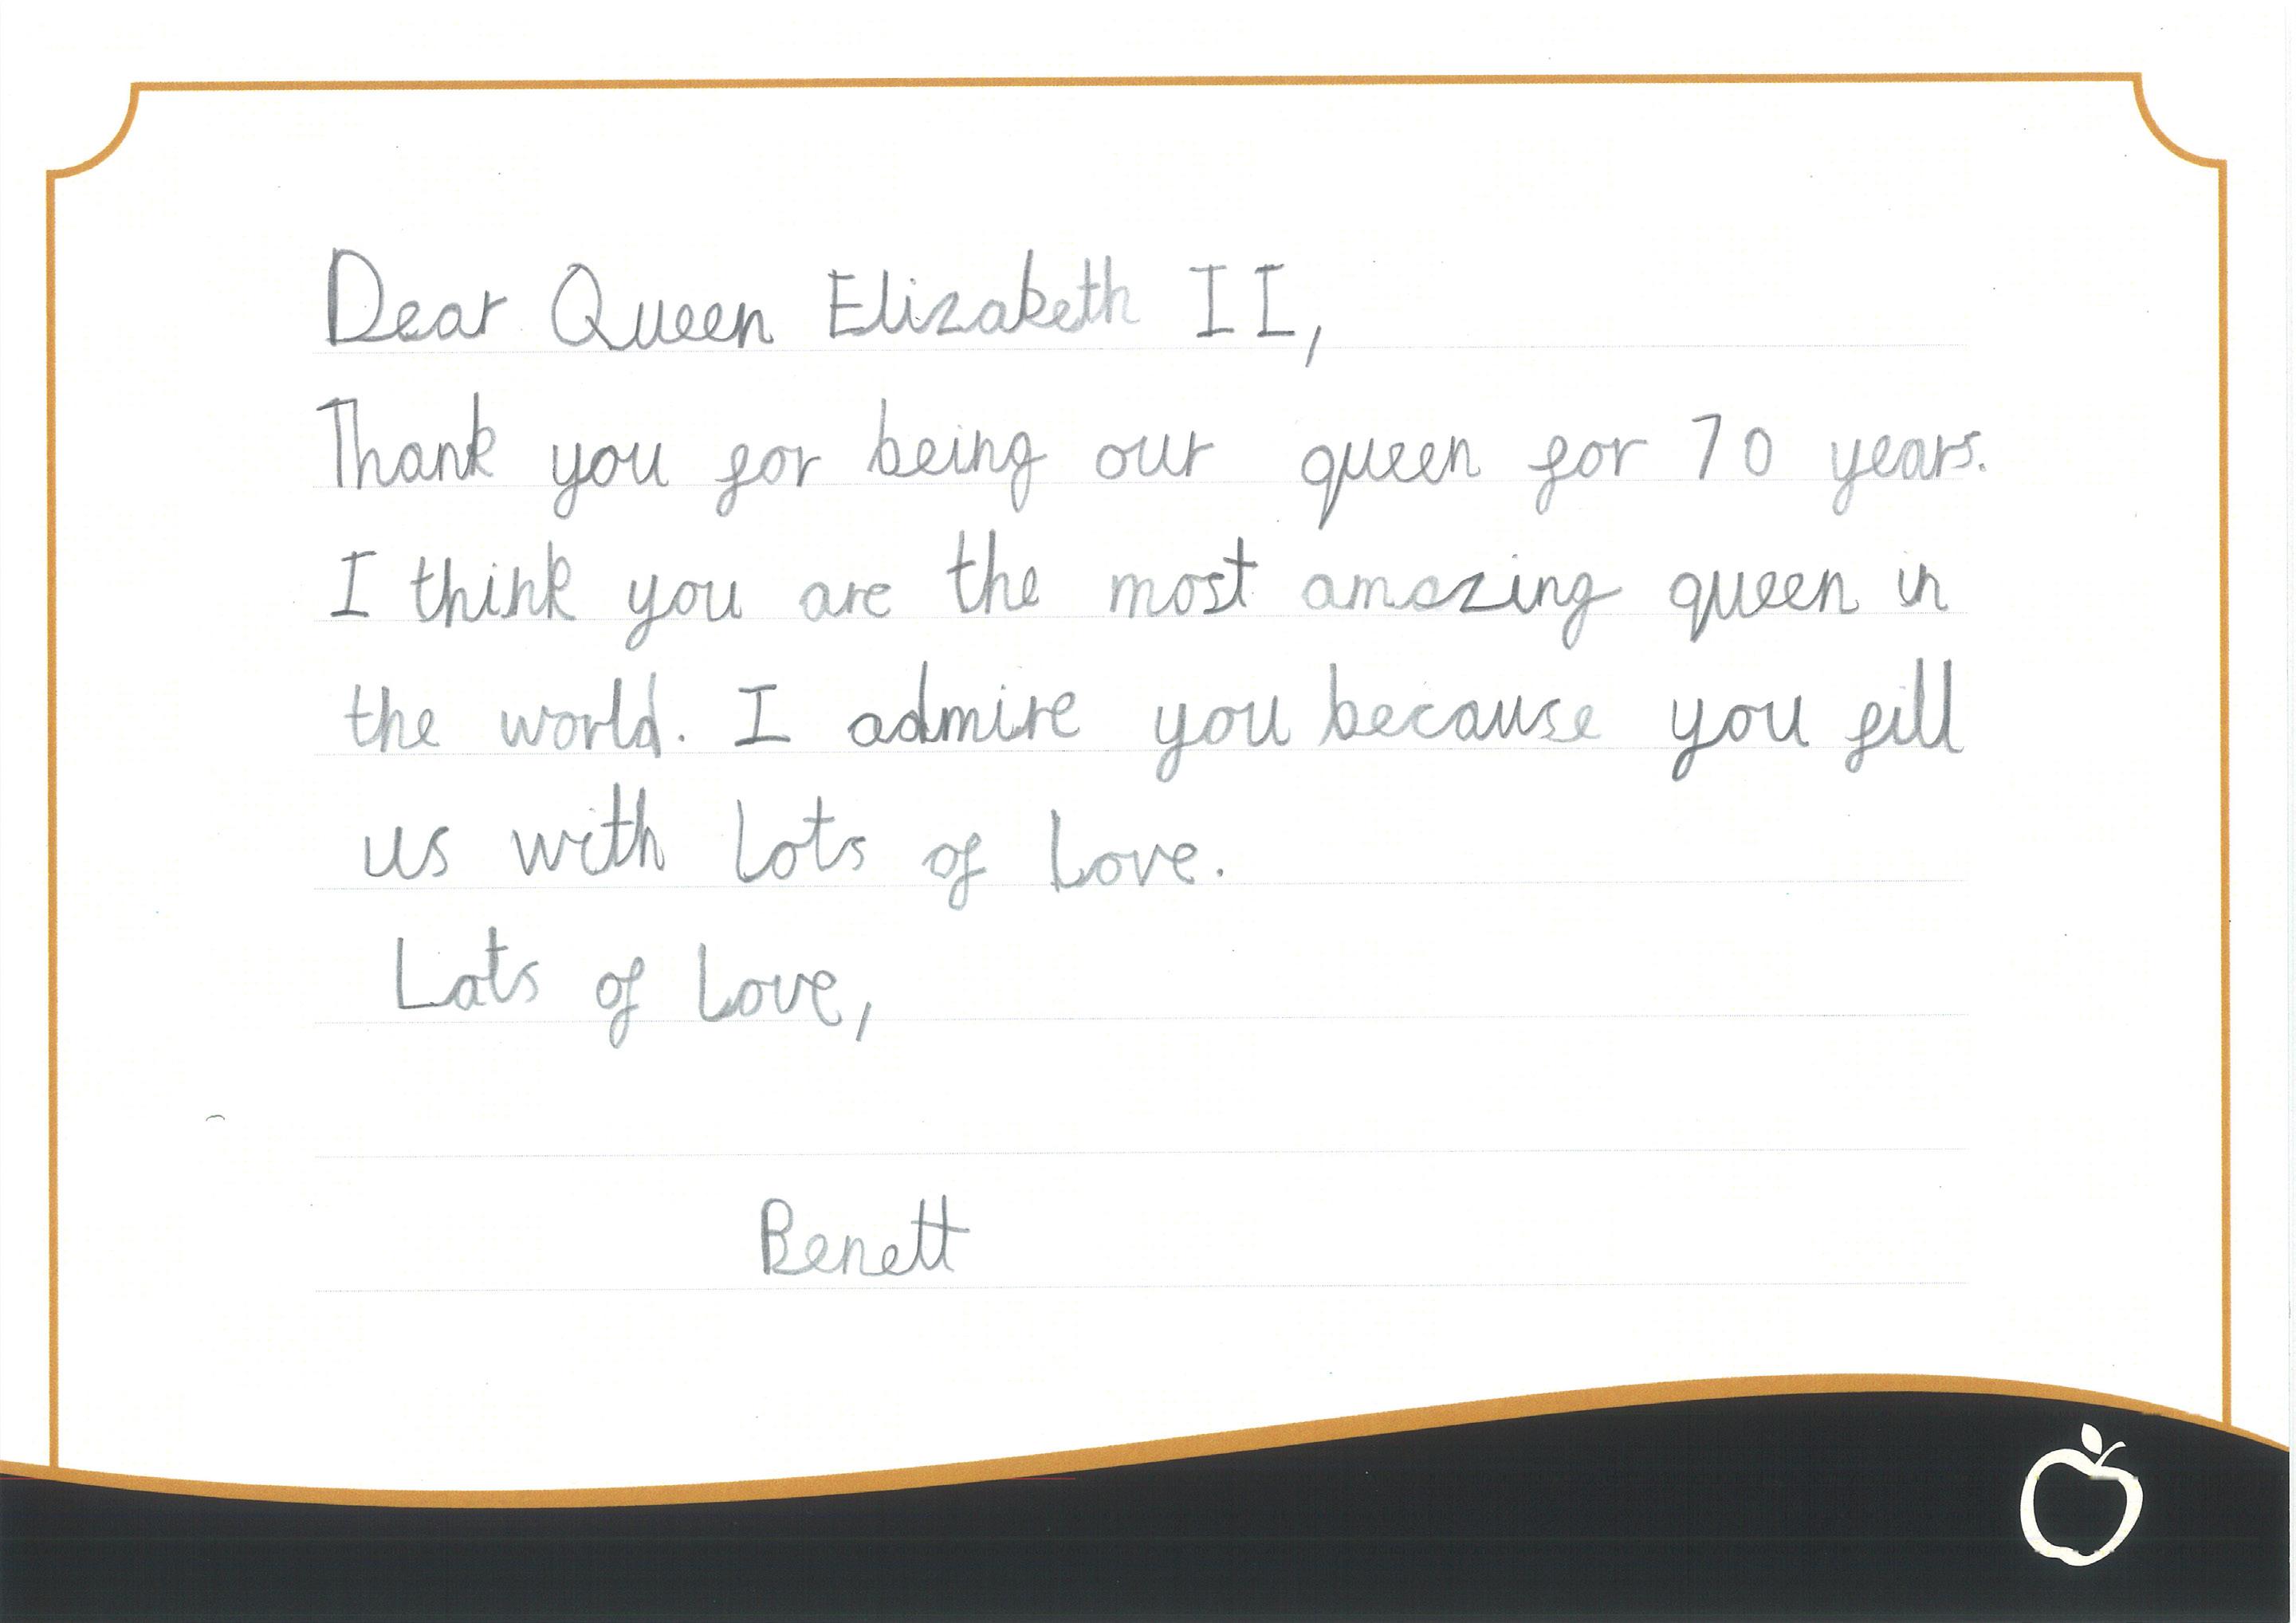 Dear Queen Elizabeth II,
Thank you for being our queen for 70 years.
I think you are the most amazing queen in
the world. I admire you because you fill
us with lots of love.
Lots of love,
Benett